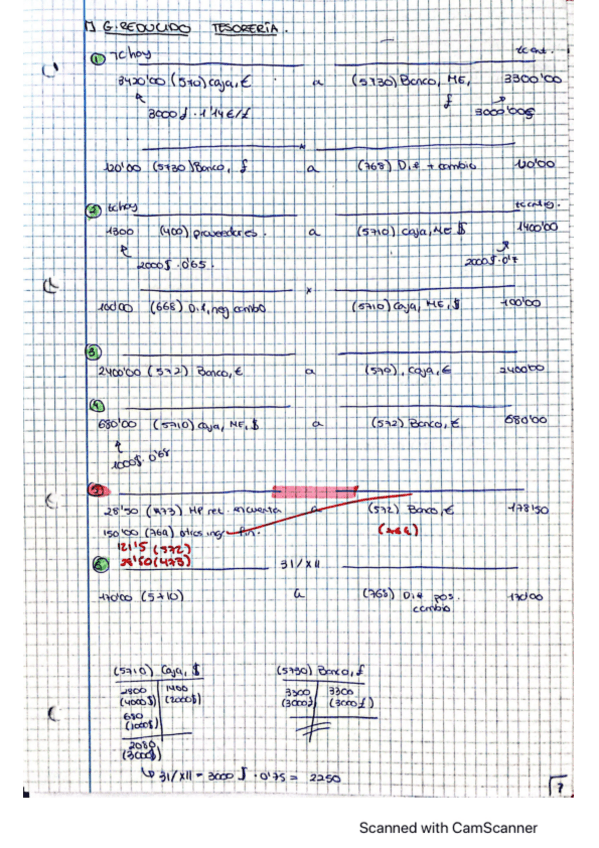 G. REDUCIDO TESORERÍA.
① tc hoy tc ant.
3420'00 (570) caja, € a (5730) Banco, ME, £ 3300'00
3000 £ · 1'14 €/£ 3000'00£
120'00 (5730) Banco, £ a (768) D.if + cambio 120'00
② tc hoy tc antig.
1300 (400) proveedores. a (5710) caja, ME $ 1400'00
2000$ · 0'65. 2000$ · 0'7
100'00 (668) D.if, neg cambio (5710) Caja, ME, $ 100'00
③
2400'00 (572) Banco, € a (570), Caja, € 2400'00
④
680'00 (5710) Caja, ME, $ a (572) Banco, € 680'00
1000$ · 0'68
⑤
28'50 (473) HP ret. en cuenta a (572) Banco, € 178'50
150'00 (769) otros ing. fin. (769)
121'5 (572)
28'50 (473)
⑥ 31/XII
170'00 (5710) a (768) D.if pos. cambio 170'00
(5710) Caja, $ (5730) Banco, £
2800 1400 3300 3300
(4000$) (2000$) (3000£) (3000£)
680
(1000$)
2080
(3000$)
↳ 31/XII = 3000 $ · 0'75 = 2250
7
Scanned with CamScanner